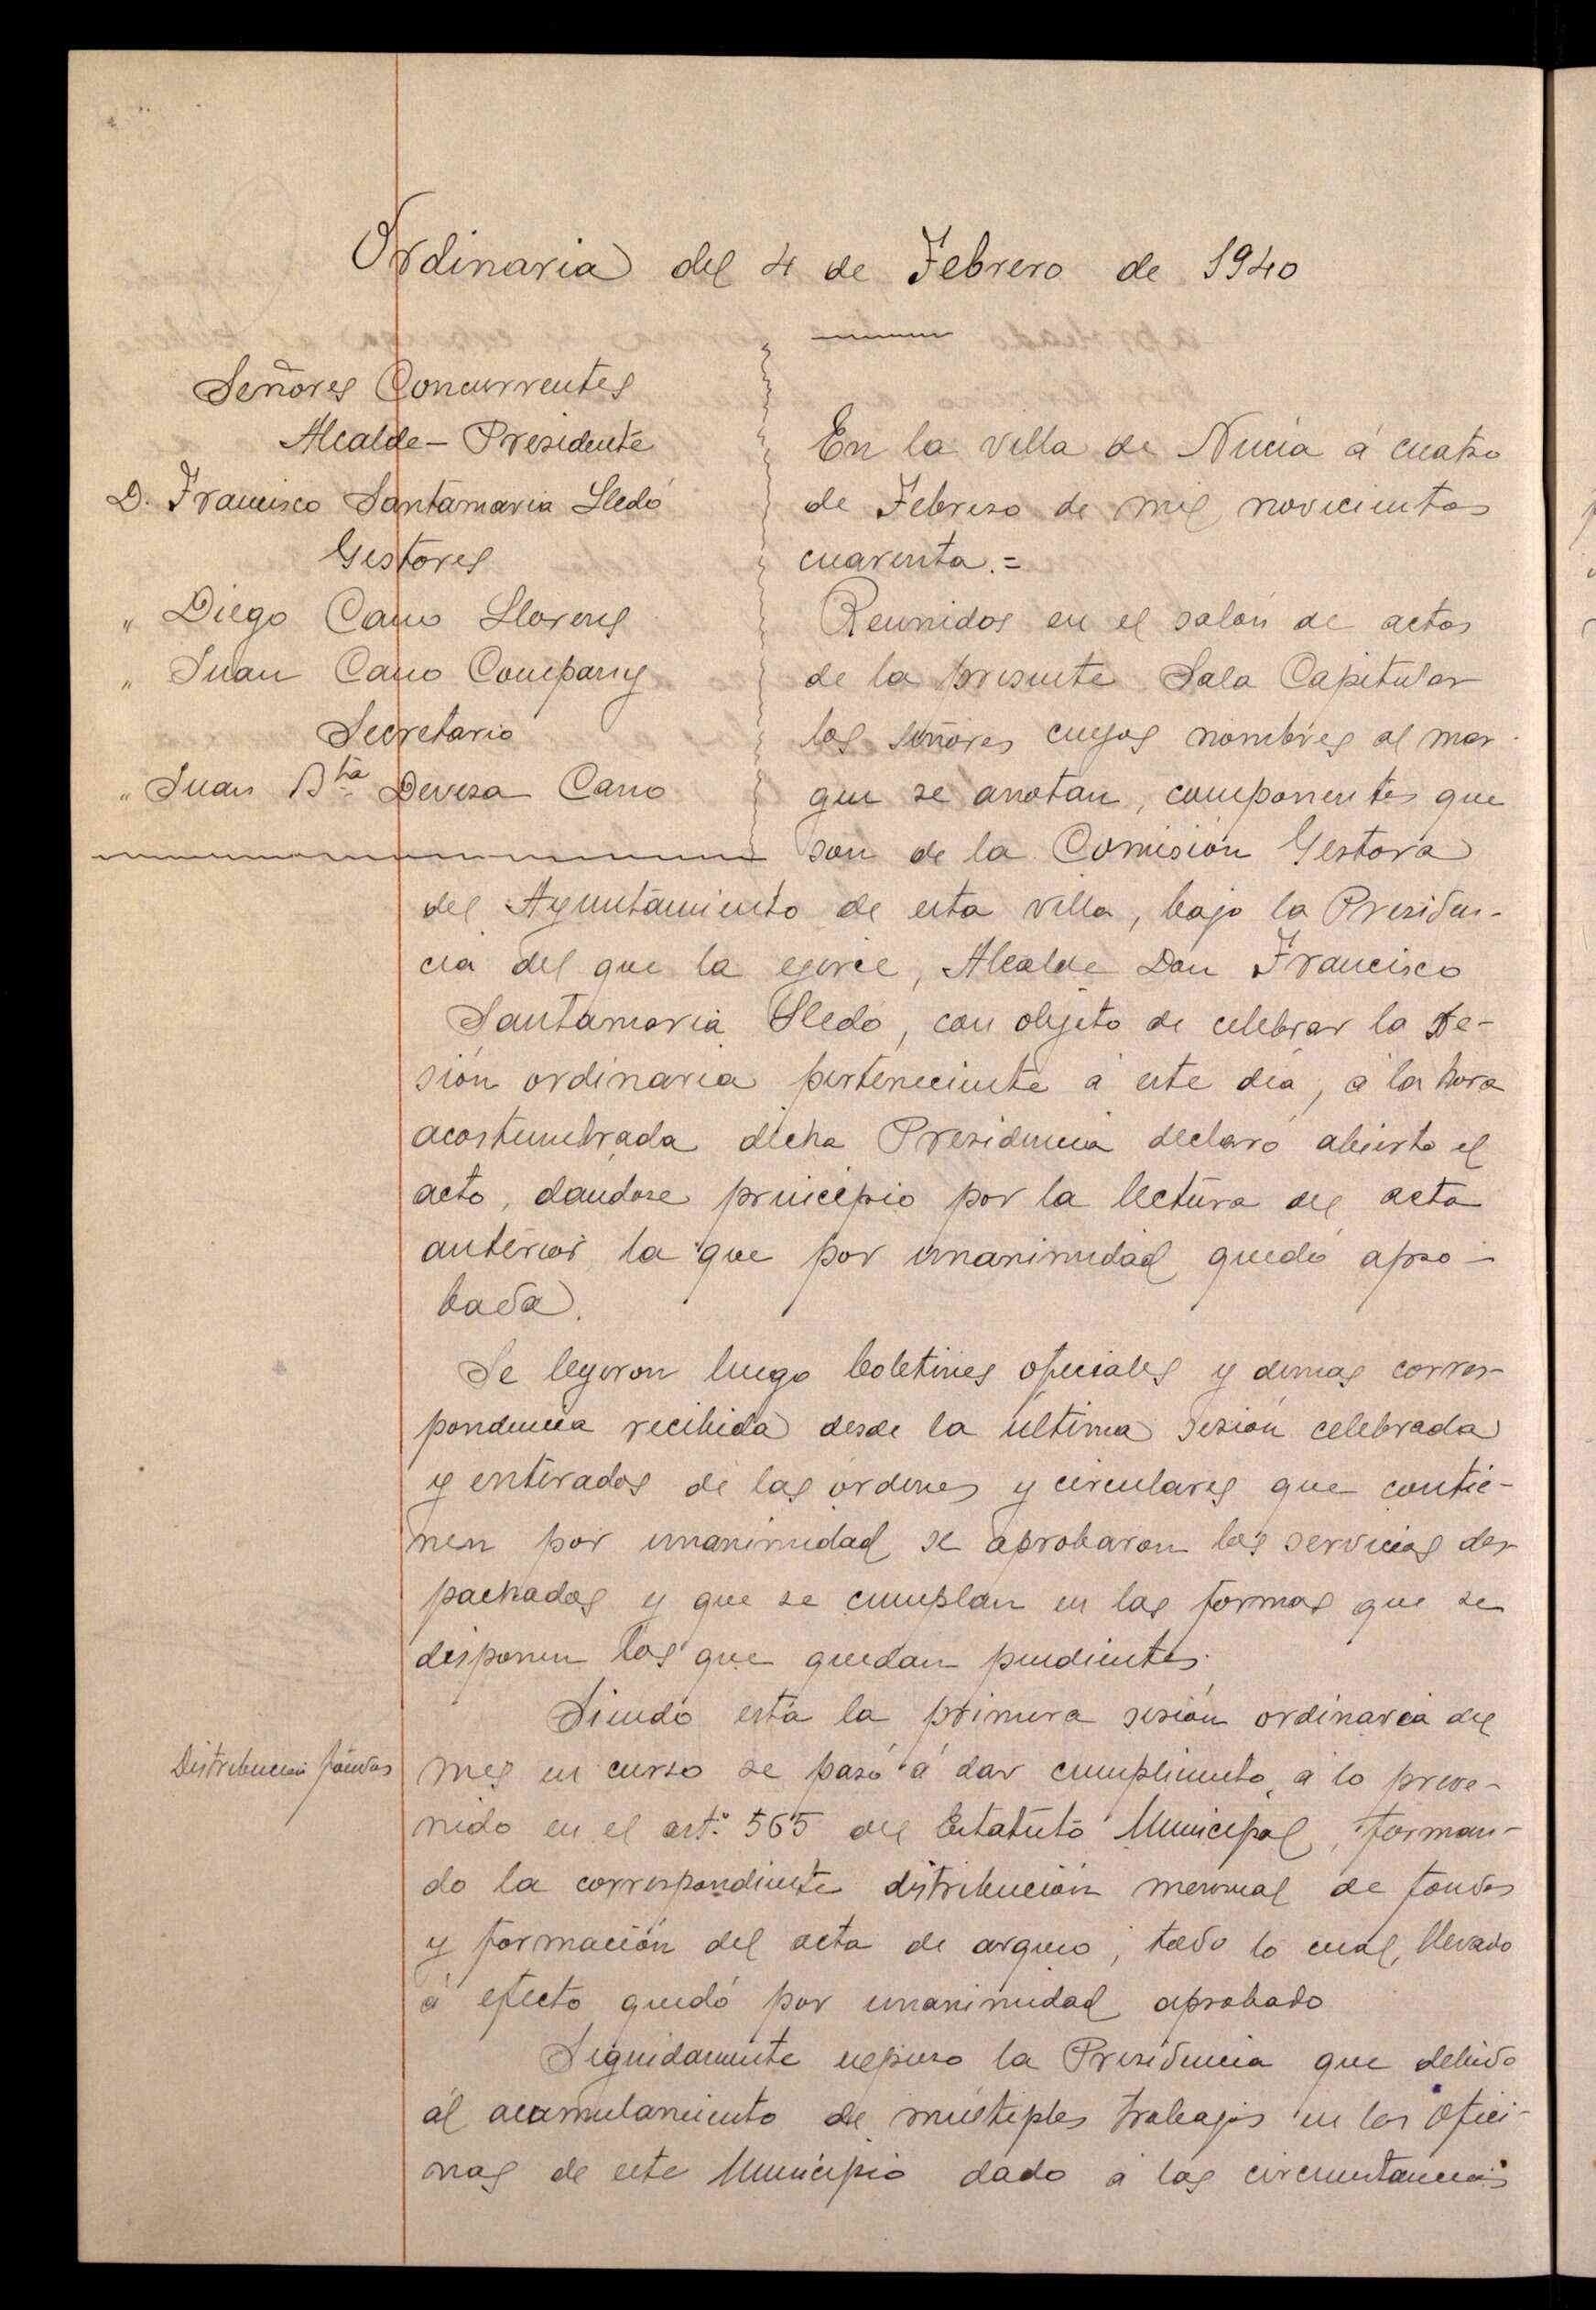 Ordinaria del 4 de Febrero de 1940
Señores Concurrentes
Alcalde - Presidente
D. Francisco Santamaria Lledó
Gestores
" Diego Cano Llorens
" Juan Cano Company
Secretario
" Juan Bta Devesa Cano
En la villa de Nucía á cuatro
de Febrero de mil novecientos
cuarenta.=
Reunidos en el salón de actos
de la presente Sala Capitular
los señores cuyos nombres al mar-
gen se anotan, componentes que
son de la Comisión Gestora
del Ayuntamiento de esta villa, bajo la Presiden-
cia del que la ejerce, Alcalde Don Francisco
Santamaria Lledó, con objeto de celebrar la se-
sión ordinaria perteneciente á este día, á la hora
acostumbrada dicha Presidencia declaró abierto el
acto, dándose principio por la lectura del acta
anterior la que por unanimidad quedó apro-
bada.
Se leyeron luego boletines oficiales y demas corres-
pondencia recibida desde la última sesión celebrada
y enterados de las órdenes y circulares que contie-
nen por unanimidad se aprobaron los servicios des-
pachados y que se cumplan en las formas que se
disponen los que quedan pendientes.
Siendo esta la primera sesión ordinaria del
Distribución fondos
mes en curso se pasó á dar cumplimiento á lo preve-
nido en el artº 565 del Estatuto Municipal, forman-
do la correspondiente distribución mensual de fondos
y formación del acta de arqueo, todo lo cual, llevado
á efecto quedó por unanimidad aprobado
Seguidamente expuso la Presidencia que debido
ál acumulamiento de múltiples trabajos en las ofici-
nas de este Municipio dado á las circunstancias